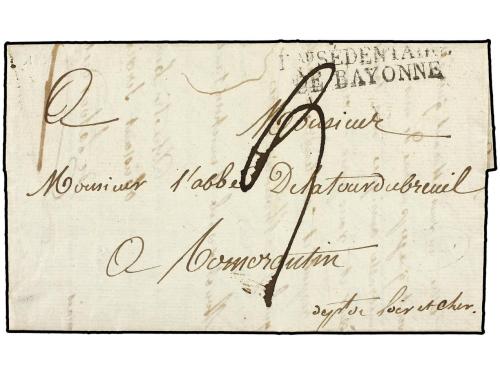 Bau SÉDENTAIRE
DE BAYONNE
A
Monsieur
Monsieur l'abbé Delatourdubreuil
A Romorantin
dept de loir et cher.